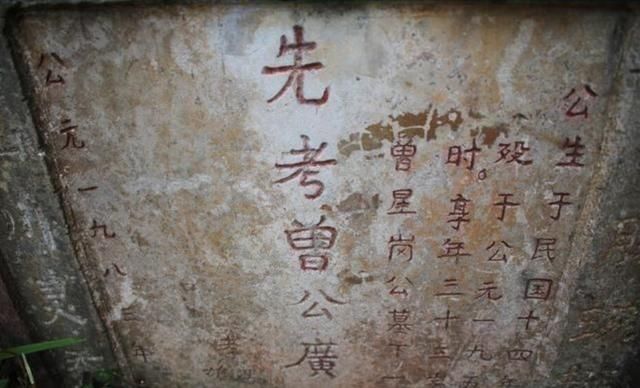 公生于民国十四
殁于公元一九五
时。享年三十三
曾星岗公墓下
先考曾公廣
公元一九八三年